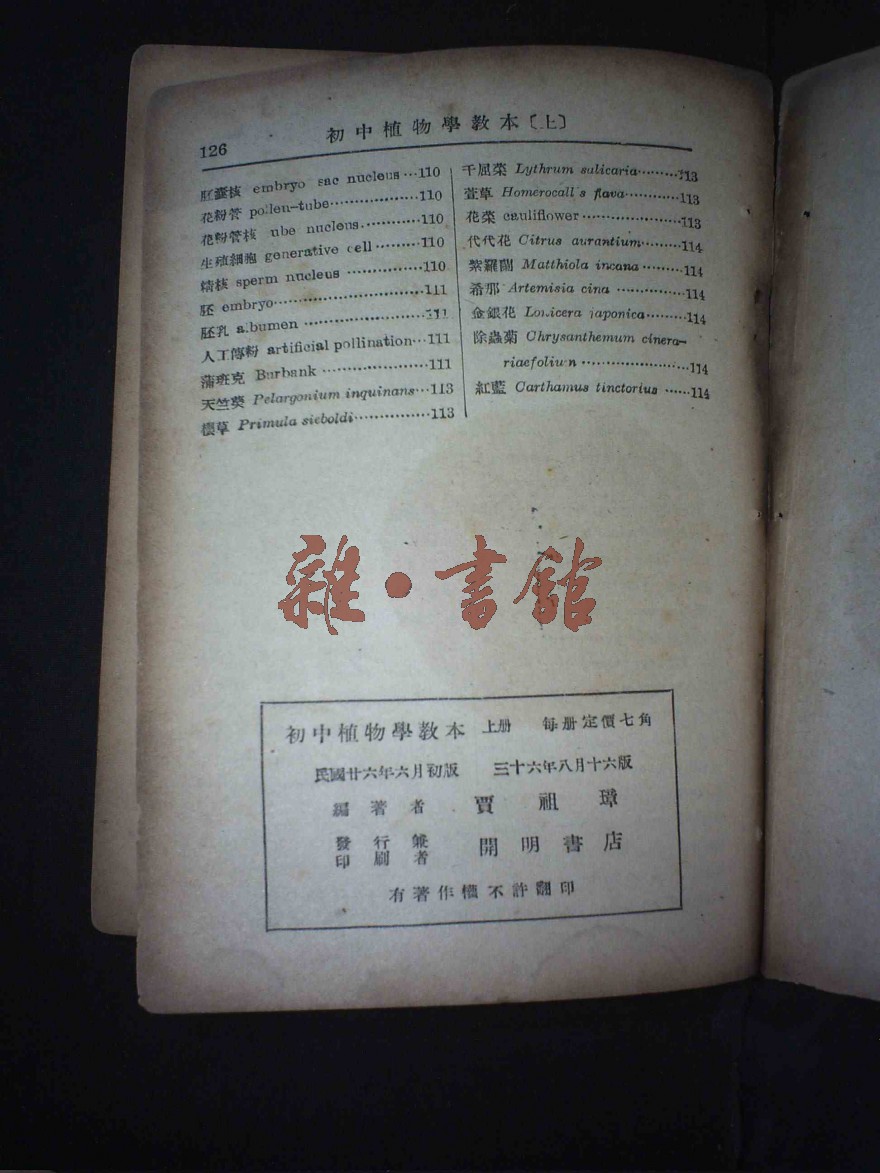 126
初中植物學教本〔上〕
胚囊核 embryo sac nucleus…110
花粉管 pollen-tube………………110
花粉管核 ube nucleus…………110
生殖細胞 generative cell………110
精核 sperm nucleus ……………110
胚 embryo…………………………111
胚乳 albumen ……………………111
人工傳粉 artificial pollination…111
蒲班克 Burbank …………………111
天竺葵 Pelargonium inquinans…113
櫻草 Primula sieboldi……………113
千屈菜 Lythrum salicaria………113
萱草 Homerocall s flava…………113
花菜 cauliflower……………………113
代代花 Citrus aurantium………114
紫羅蘭 Matthiola incana………114
希那 Artemisia cina ……………114
金銀花 Lonicera japonica………114
除蟲菊 Chrysanthemum cinera-
riaefolium ……………………114
紅藍 Carthamus tinctorius ……114
雜·書館
初中植物學教本 上册 每册定價七角
民國廿六年六月初版 三十六年八月十六版
編著者 賈祖璋
發行兼
印刷者 開明書店
有著作權不許翻印